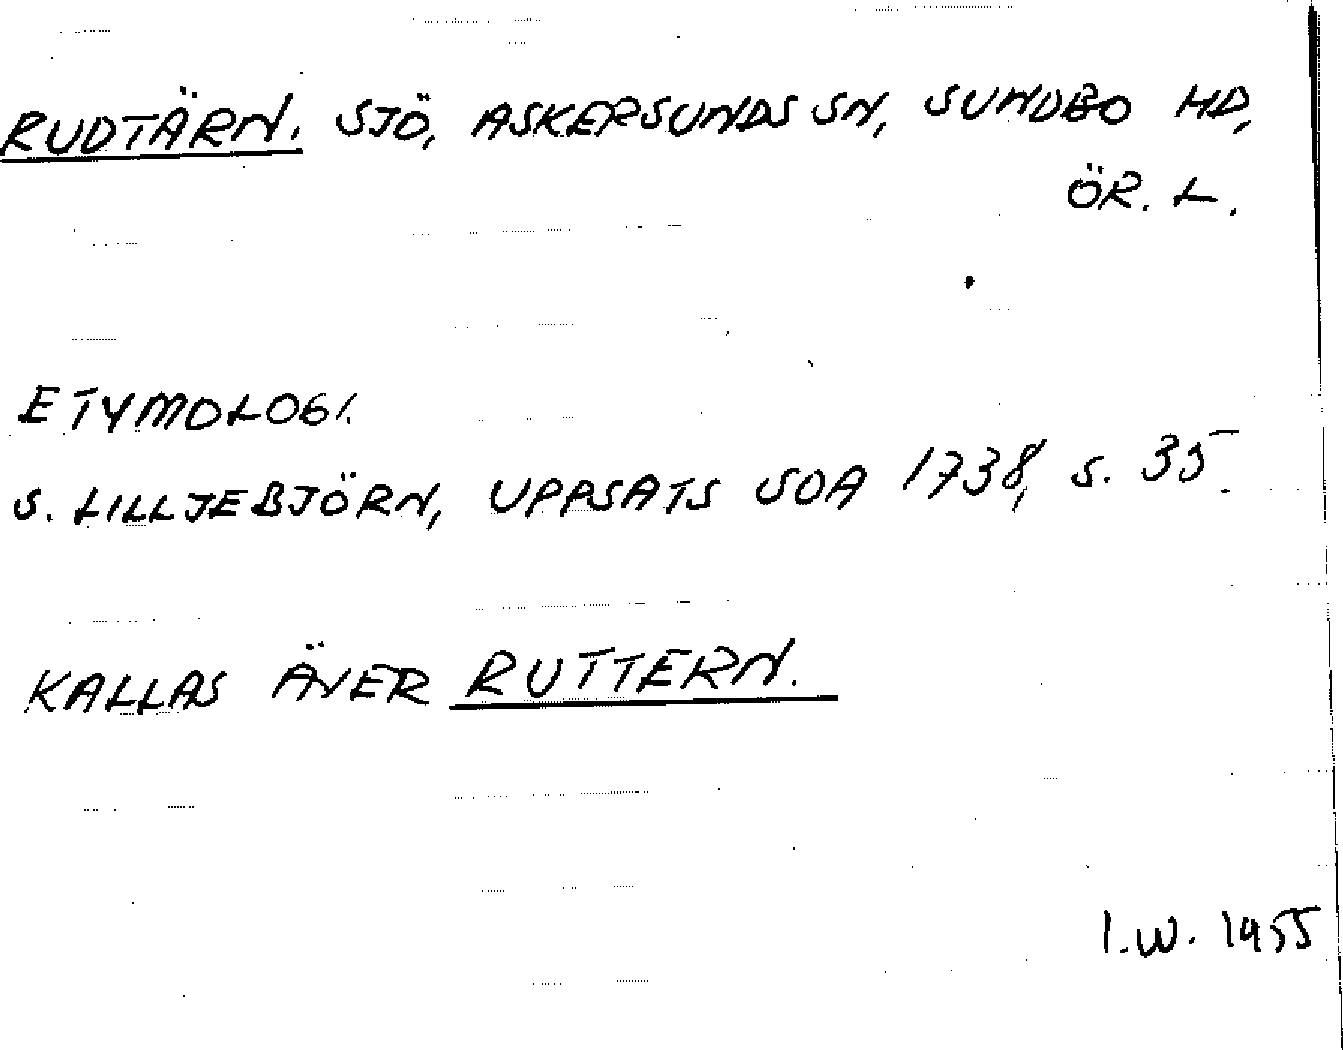 RUDTÄRN. SJÖ, ASKERSUNDS SN, SUNDBO HD,
ÖR. L.
ETYMOLOGI.
S. LILLJEBJÖRN, UPPSATS SOA 1738, S. 35.
KALLAS ÄVER RUTTERN.
I.W. 1955